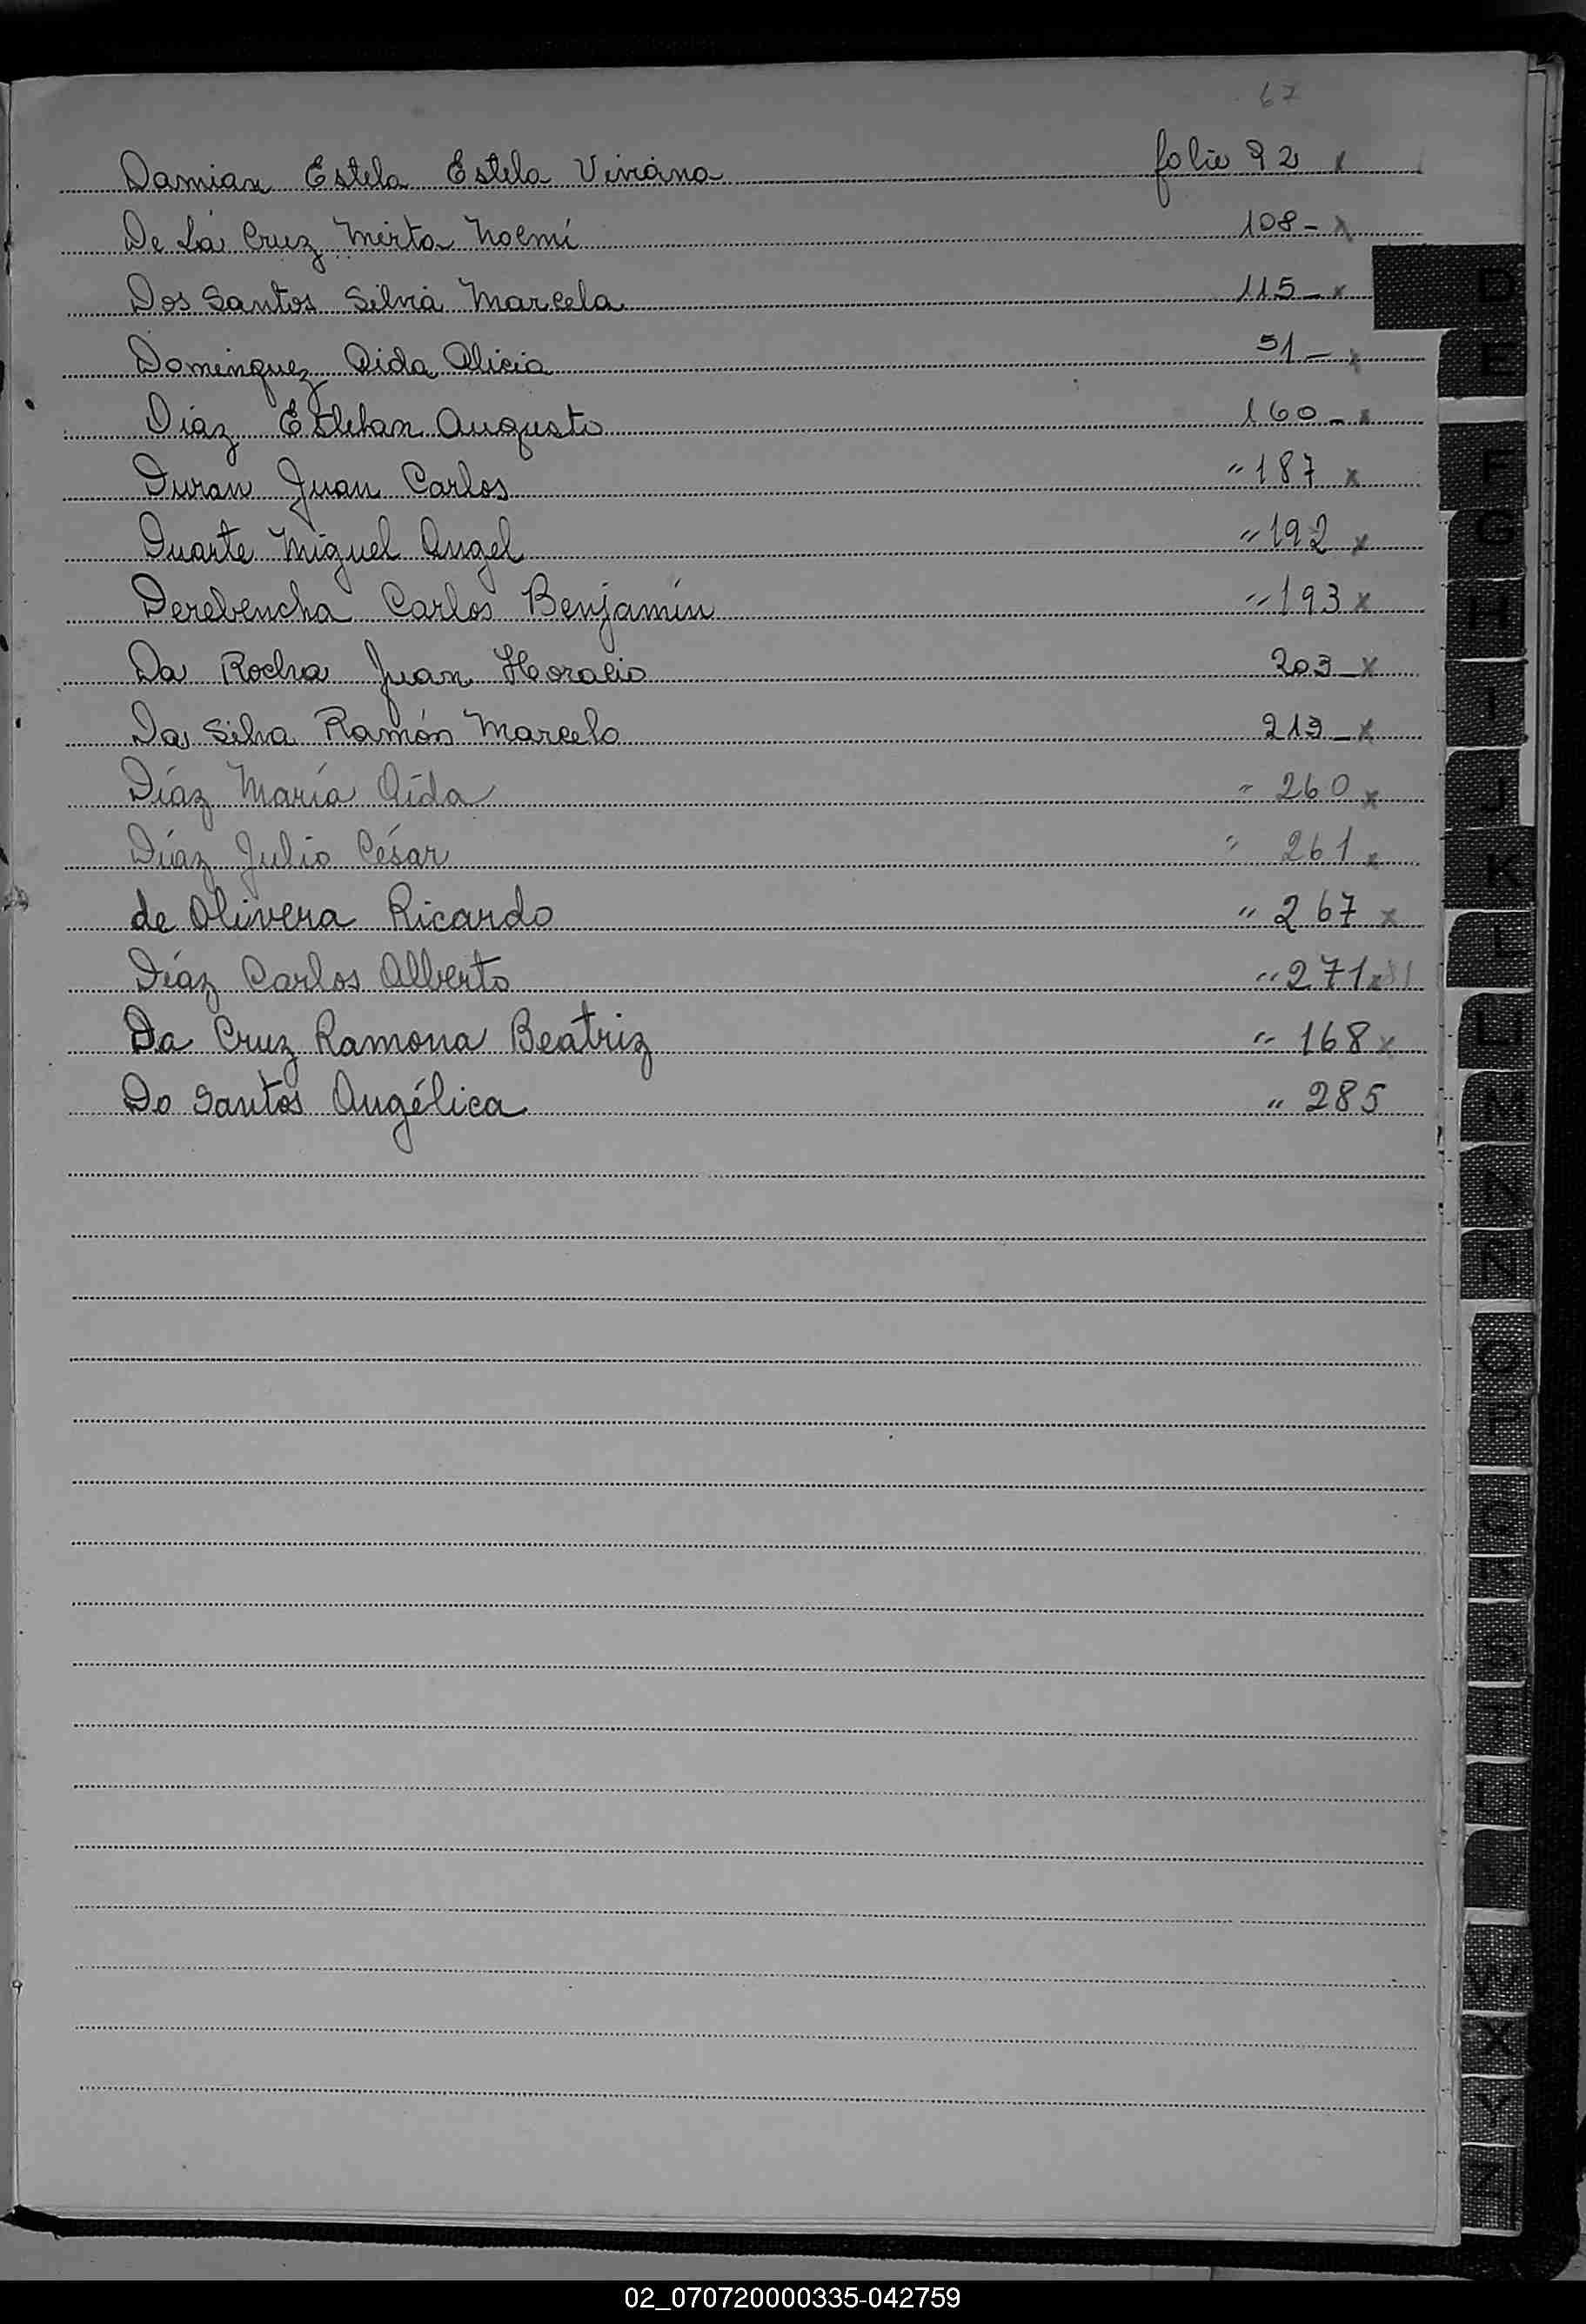 67
Damian Estela Estela Viviana folio 92 x
De La Cruz Mirta Noemí 108 - x
Dos Santos Silvia Marcela 115 - x
Dominguez Aida Alicia 51 - x
Díaz Esteban Augusto 160 - x
Duran Juan Carlos " 187 x
Duarte Miguel Angel " 192 x
Derebencha Carlos Benjamín " 193 x
Da Rocha Juan Horacio 203 - x
Da Silva Ramón Marcelo 213 - x
Díaz María Aída " 260 x
Díaz Julio César " 261 x
de Olivera Ricardo " 267 x
Díaz Carlos Alberto " 271 x
Da Cruz Ramona Beatriz " 168 x
Do Santos Angélica " 285
D
E
F
G
H
I
J
K
L
LL
M
N
Ñ
O
P
Q
R
S
T
U
W
X
Y
Z
02_070720000335-042759